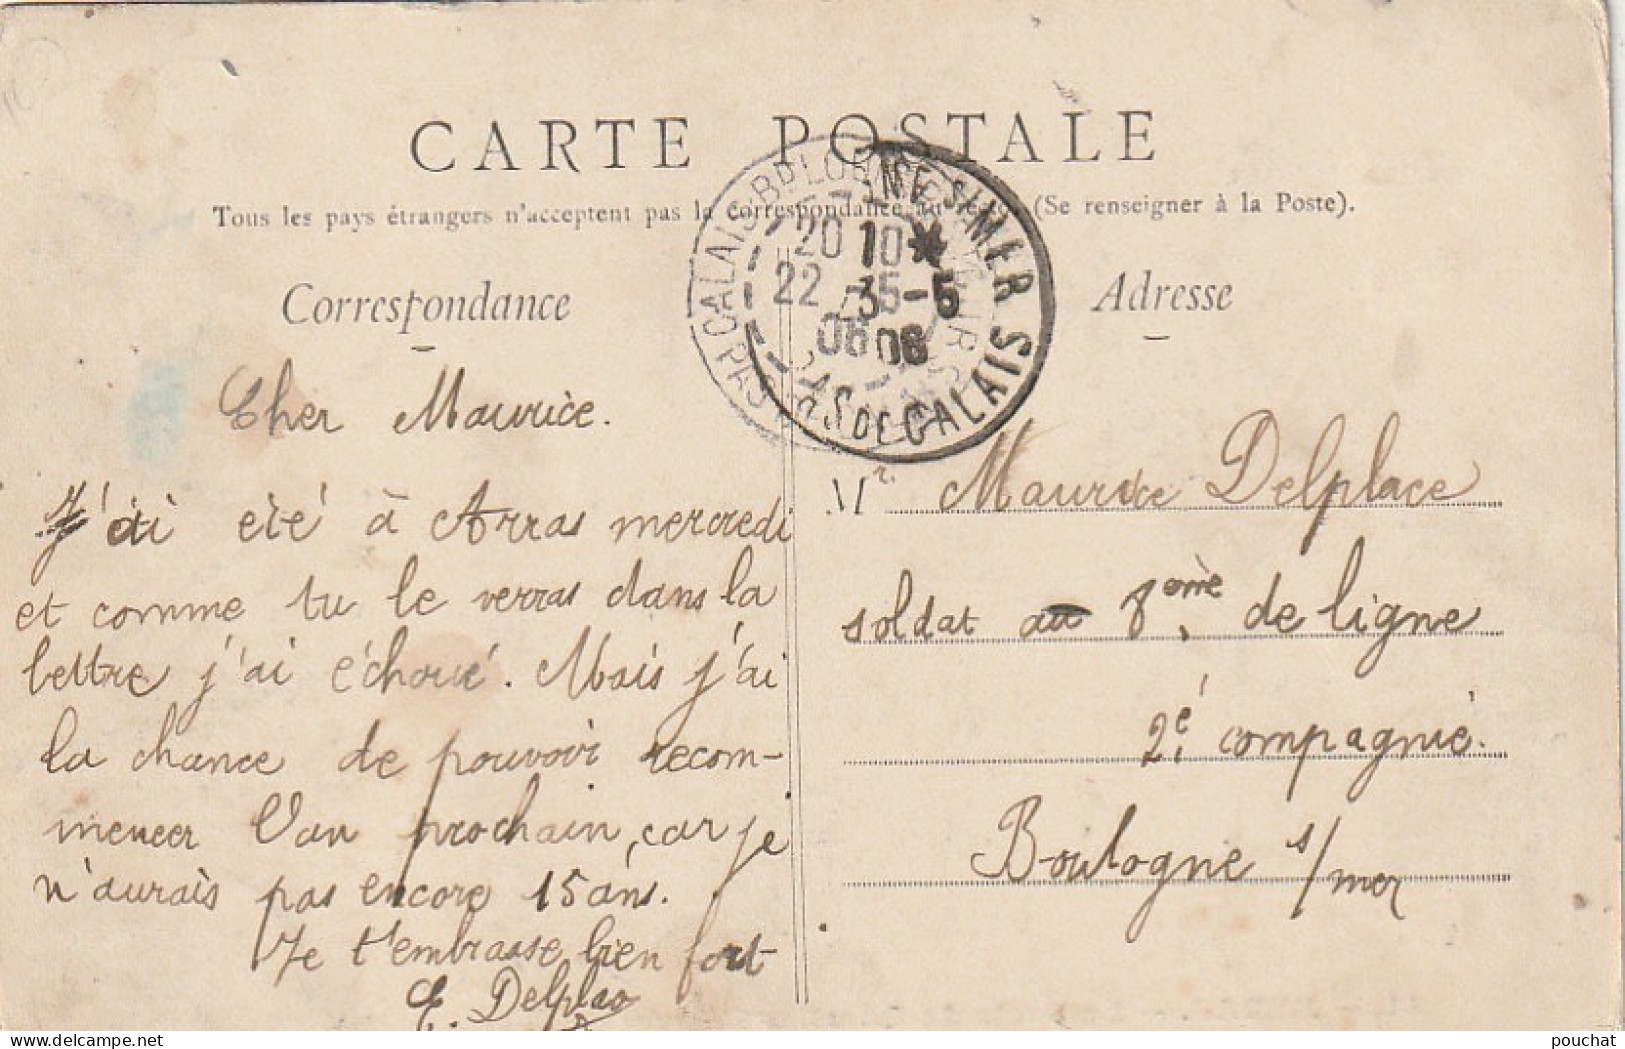 CARTE POSTALE
Tous les pays étrangers n'acceptent pas la correspondance au recto (Se renseigner à la Poste).
Correspondance
Cher Maurice.
J'ai été à Arras mercredi
et comme tu le verras dans la
lettre j'ai échoué. Mais j'ai
la chance de pouvoir recom-
mencer l'an prochain, car je
n'aurais pas encore 15 ans.
Je t'embrasse bien fort
E. Delplac
Adresse
Mr. Maurice Delplace
soldat au 8ème de ligne
2é compagnie.
Boulogne s/mer
CALAIS
PAS
20
22
06
S/MER
PAS DE CALAIS
10*
5-5
06
www.delcampe.net
pouchat